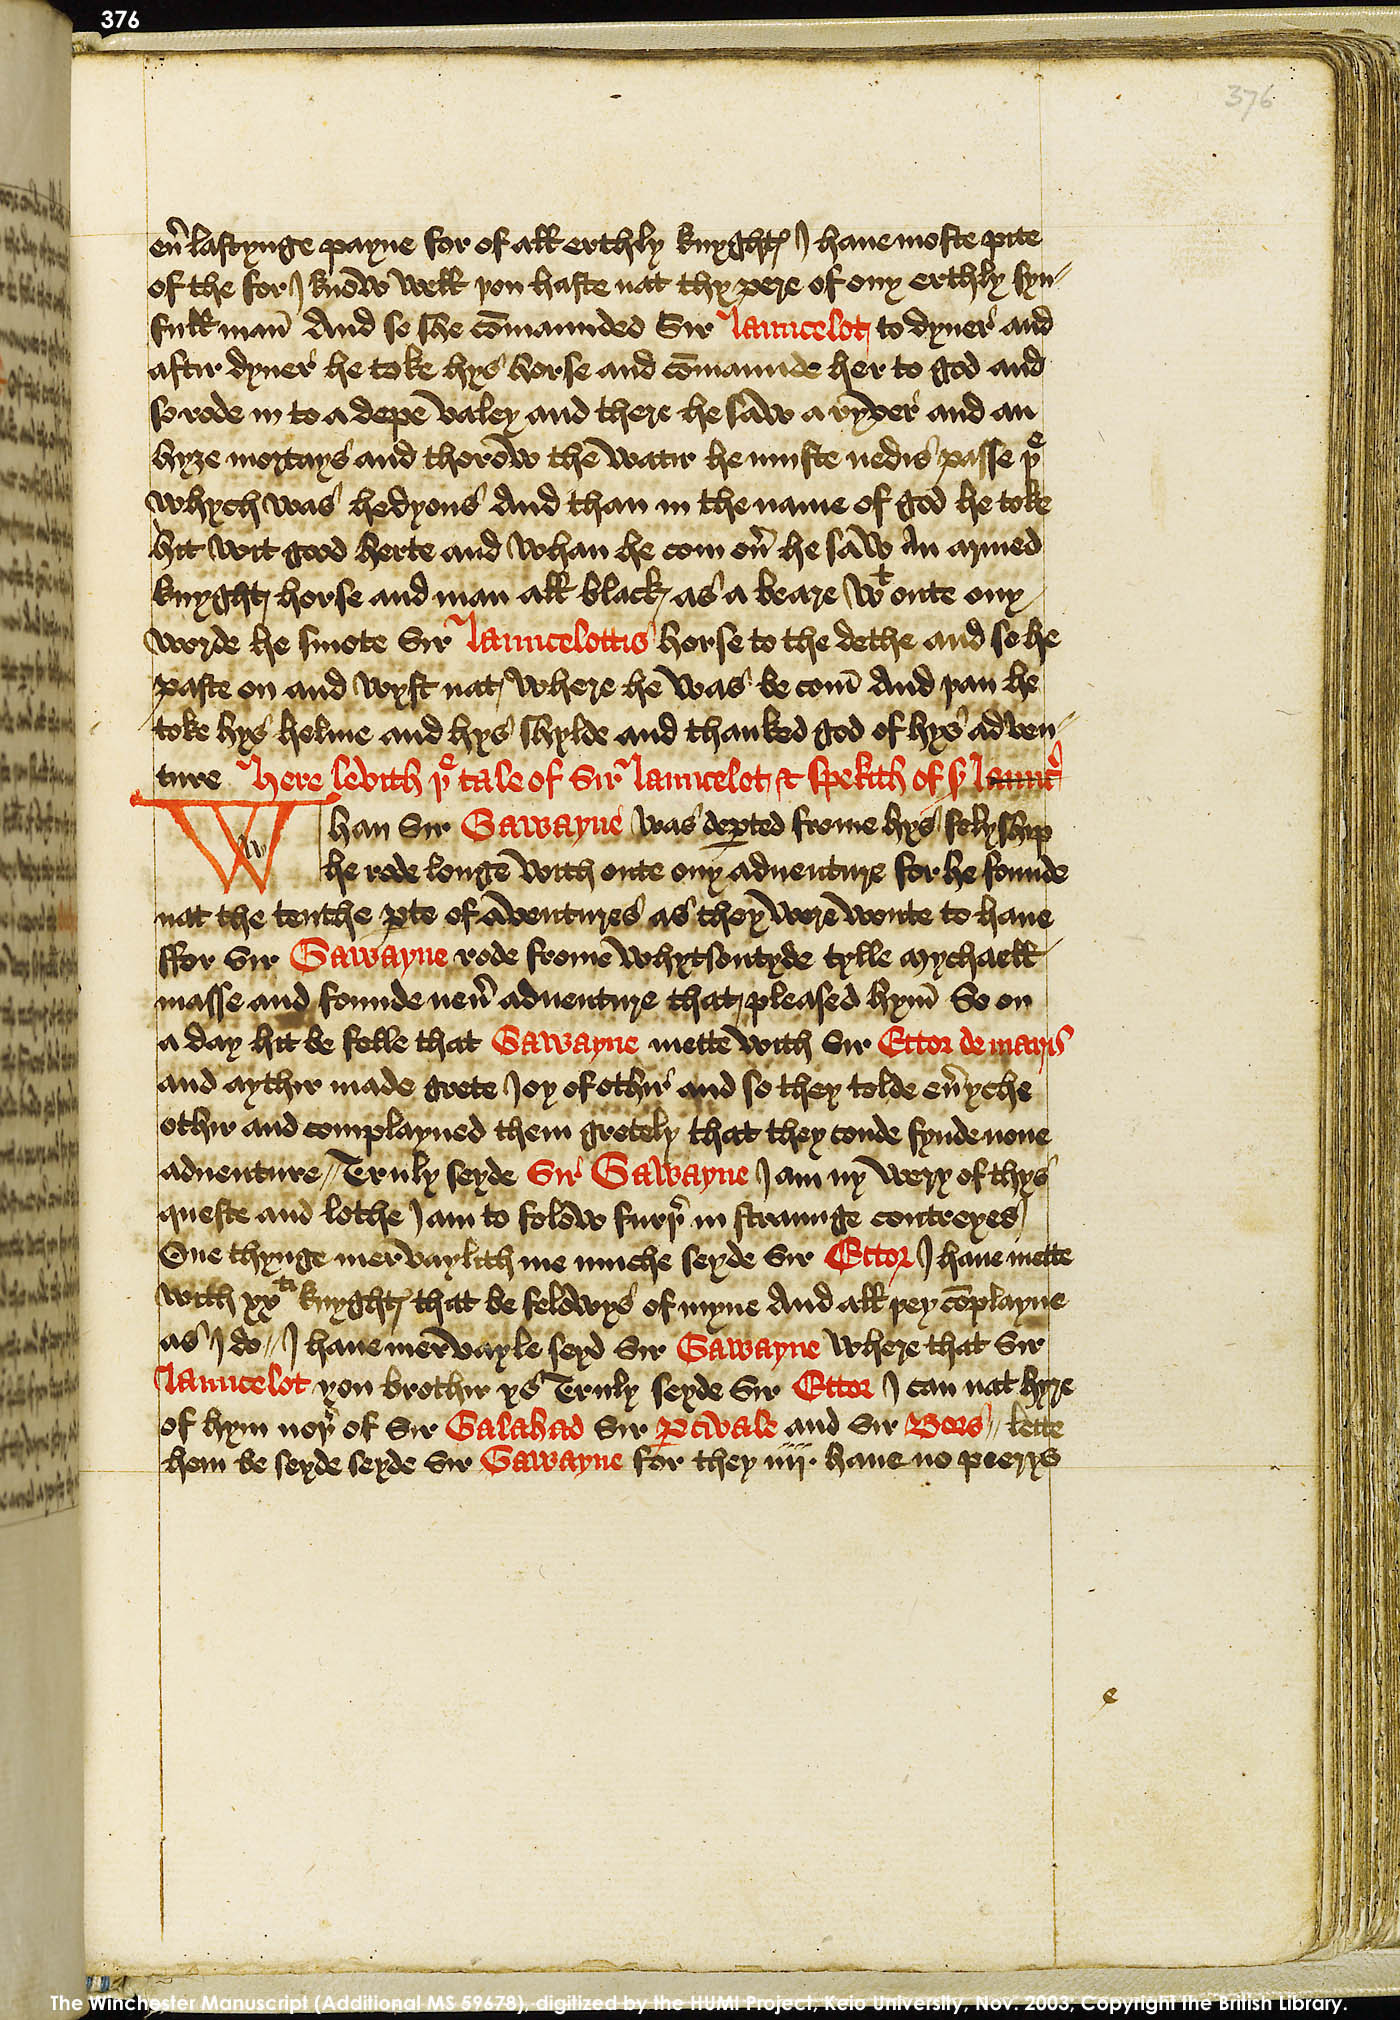 376
376
eũ lastynge payne for of all erthly knyghtꝭ I haue moste pite
of the for I know well þou haste nat thy pere of ony erthly syn-
full mañ And so she cõmaunded Sir Launcelot to dyner and
aftir dyner he toke hys horse and cõmaunde her to god and
so rode in to a depe valey and there he saw a ryver and an
hyʒe mortays and thorow the watir he muste nedis passe þͤ
whych was hedyous And than in the name of god he toke
hit wit good herte and whan he com oũ he saw An armed
knyght horse and man all black as a beare wᵗ oute ony
worde he smote Sir Launcelottis horse to the dethe and so he
paste on and wyst nat where he was be com̃ And þan he
toke hys helme and hys shylde and thanked god of hys adven-
ture Here levith þͤ tale of Sir Launcelot & spekith of sʳ Launc̃
W
w
han Sir Gawayne was deꝑted frome hys felyship
he rode longe with oute ony adventure for he founde
nat the tenthe ꝑte of aventures as they were wonte to haue
ffor Sir Gawayne rode frome whytsontyde tylle Mychaell
masse and founde neũ adventure that pleased hym̃ So on
a day hit be felle that Gawayne mette with Sir Ettor de marys
and aythir made grete Joy of othir and so they tolde eũyche
othir and complayned them gretely that they coude fynde none
adventure // Truly seyde Sir Gawayne I am ny wery of thys
queste and lothe I am to folow furþ̃ in straunge contreyes
One thynge mervaylith me muche seyde Sir Ettor I haue mette
with xxᵗⁱ knyghtꝭ that be felowys of myne And all þey cõplayne
as I do // I haue mervayle seyd Sir Gawayne where that Sir
Launcelot yoͬ brothir ys Truly seyde Sir Ettor I can nat hyre
of hym norþ̃ of Sir Galahad Sir Ꝑcivale and Sir Bors // lette
hem be seyde seyde Sir Gawayne for they iiij. haue no peerys
e
The Winchester Manuscript (Additional MS 59678), digitized by the HUMI Project, Keio University, Nov. 2003; Copyright the British Library.